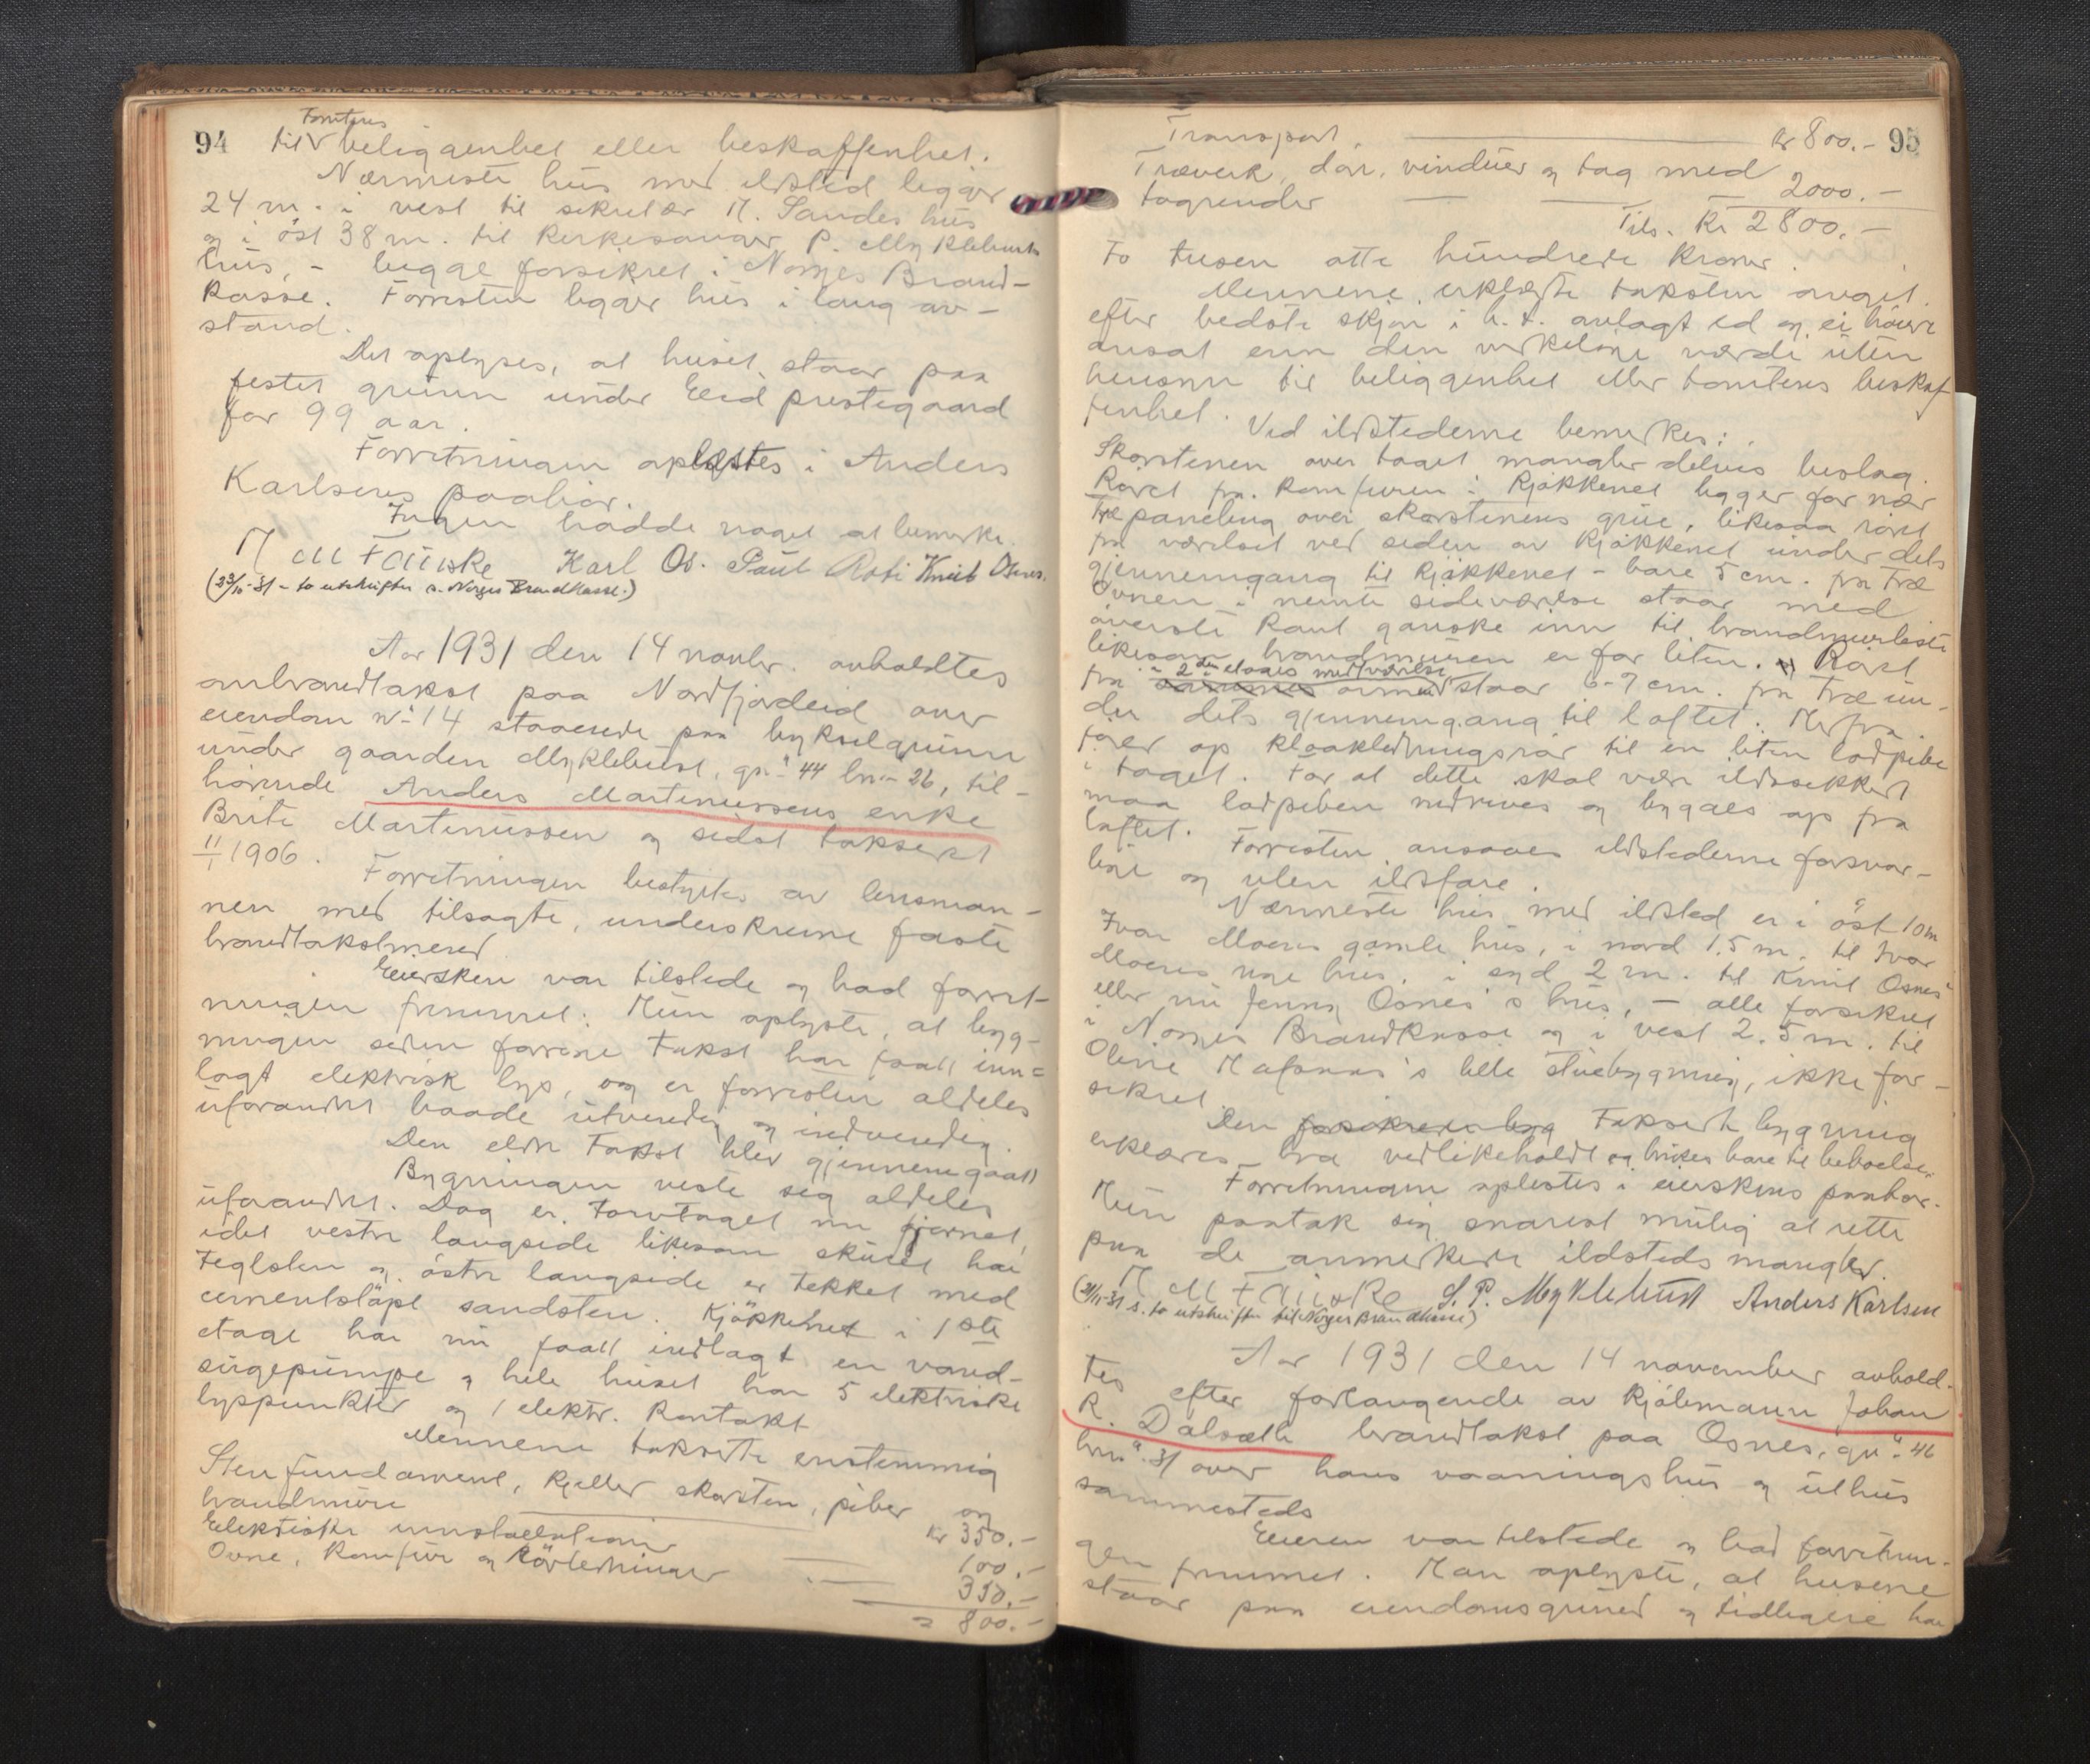 94
Tomtens
til beliggenhet eller beskaffenhet.
Nærmeste hus med ildsted ligger
24 m. i vest til sekretær H. Sandes hus
og i öst 38 m. til kirkesanger P. Myklebusts
hus, - begge forsikret i Norges Brand-
kasse. Forresten ligger hus i lang av-
stand.
Det oplyses, at huset staar paa
festet grunn under Eid prestegaard
for 99 aar.
Forretningen oplæstes i Anders
Karlsens paahör.
Ingen hadde noget at bemerke.
Karl Os. Paul Roti Knut Osnes.
(23/10-31 - to utskrifter s. Norges Brandkasse.)
Aar 1931 den 14 novbr. avholdtes
ombrandtakst paa Nordfjordeid over
eiendom nr 14 staaende paa bykselgrunn
under gaarden Myklebust, gnr 44 bnr 26, til-
hörende Anders Martinussens enke
Brite Martinussen og sidst taksert
11/1 1906.
Forretningen bestyrtes av lensman-
nen med tilsagte, underskrevne faste
brandtakstmenn
Eiersken var tilstede og bad forret-
ningen fremmet: Hun oplyste, at byg-
ningen siden forrige takst har faatt inn-
lagt elektrisk lys, og er forresten aldeles
uforandret baade utvendig og indvendig.
Den eldre takst blev gjennemgaatt
Bygningen viste sig aldeles
uforandret. Dog er torvtaget nu fjernet,
idet vestre langside likesom skuret har
teglsten og östre langside er tekket med
cementstöpt sandsten. Kjökkenet i 1ste
etage har nu faatt indlagt en vand-
sugepumpe og hele huset har 5 elektriske
lyspunkter og 1 elektr. kontakt
Mennene takserte enstemmig
Stenfundament, kjeller skorsten, piber og
brandmure kr 350.-
Elektriske innstallation 100.-
Ovne, komfur og rörledninger 350.-
= 800.-
Transport kr 800.- 95
Træverk, dör, vinduer og tag med
tagrender 2000.-
Tils. kr 2800.-
To tusen otte hundrede kroner.
Mennene erklærte taksten avgit
efter bedste skjön i h.t. avlagt ed og ei höiere
ansat enn den virkelige værdi uten
hensyn til beliggenhet eller tomtens beskaf-
fenhet.
Ved ildstederne bemerkes:
Skorstenen over taget mangler delvis beslag.
Röret fra komfuren i kjökkenet ligger for nær
træpaneling over skorstenens grue, likesaa röret
fra værelset ved siden av kjökkenet under dets
gjennemgang til kjökkenet - bare 5 cm. fra træ
Ovnen i nevnte sideværelse staar med
överste kant ganske inn til brandmurlisten
likesom brandmuren er for liten. Röret
i 2den etages midtværelse
fra staar 6-7 cm. fra træ un-
der dets gjennemgang til loftet. Herfra
förer op kloakledningsrör til en liten lodpibe
i taget. For at dette skal være ildsikkert
maa lodpiben nedrives og bygges op fra
loftet. Forresten ansaaes ildstederne forsvar-
lige og uten ildsfare.
Nærmeste hus med ildsted er i öst 10 m
Ivar Moens gamle hus, i nord 1.5 m. til Ivar
Moens nye hus, i syd 2 m. til Knut Osnes'
eller nu Jenny Osnes's hus, - alle forsikret
i Norges Brandkasse og i vest 2.5 m. til
Oline 's lille stuebygning, ikke for-
sikret.
Den forsikrede byg takserte bygning
erklæres bra vedlikeholdt og brukes bare til beboelse.
Forretningen oplestes i eierskens paahör.
Hun paatok sig snarest mulig at rette
paa de anmerkede ildsteds mangler.
S. P. Myklebust Anders Karlsen
(21/11-31 s. to utskrifter til Norges Brandkasse)
Aar 1931 den 14 november avhold-
tes efter forlangende av kjöbmann Johan
R. Dalsæth brandtakst paa Osnes, gnr 46
bnr 31 over hans vaaningshus og uthus
sammesteds
Eieren var tilstede og bad forretnin-
gen fremmet. Han oplyste, at husene
staar paa eiendomsgrund og tidligere har